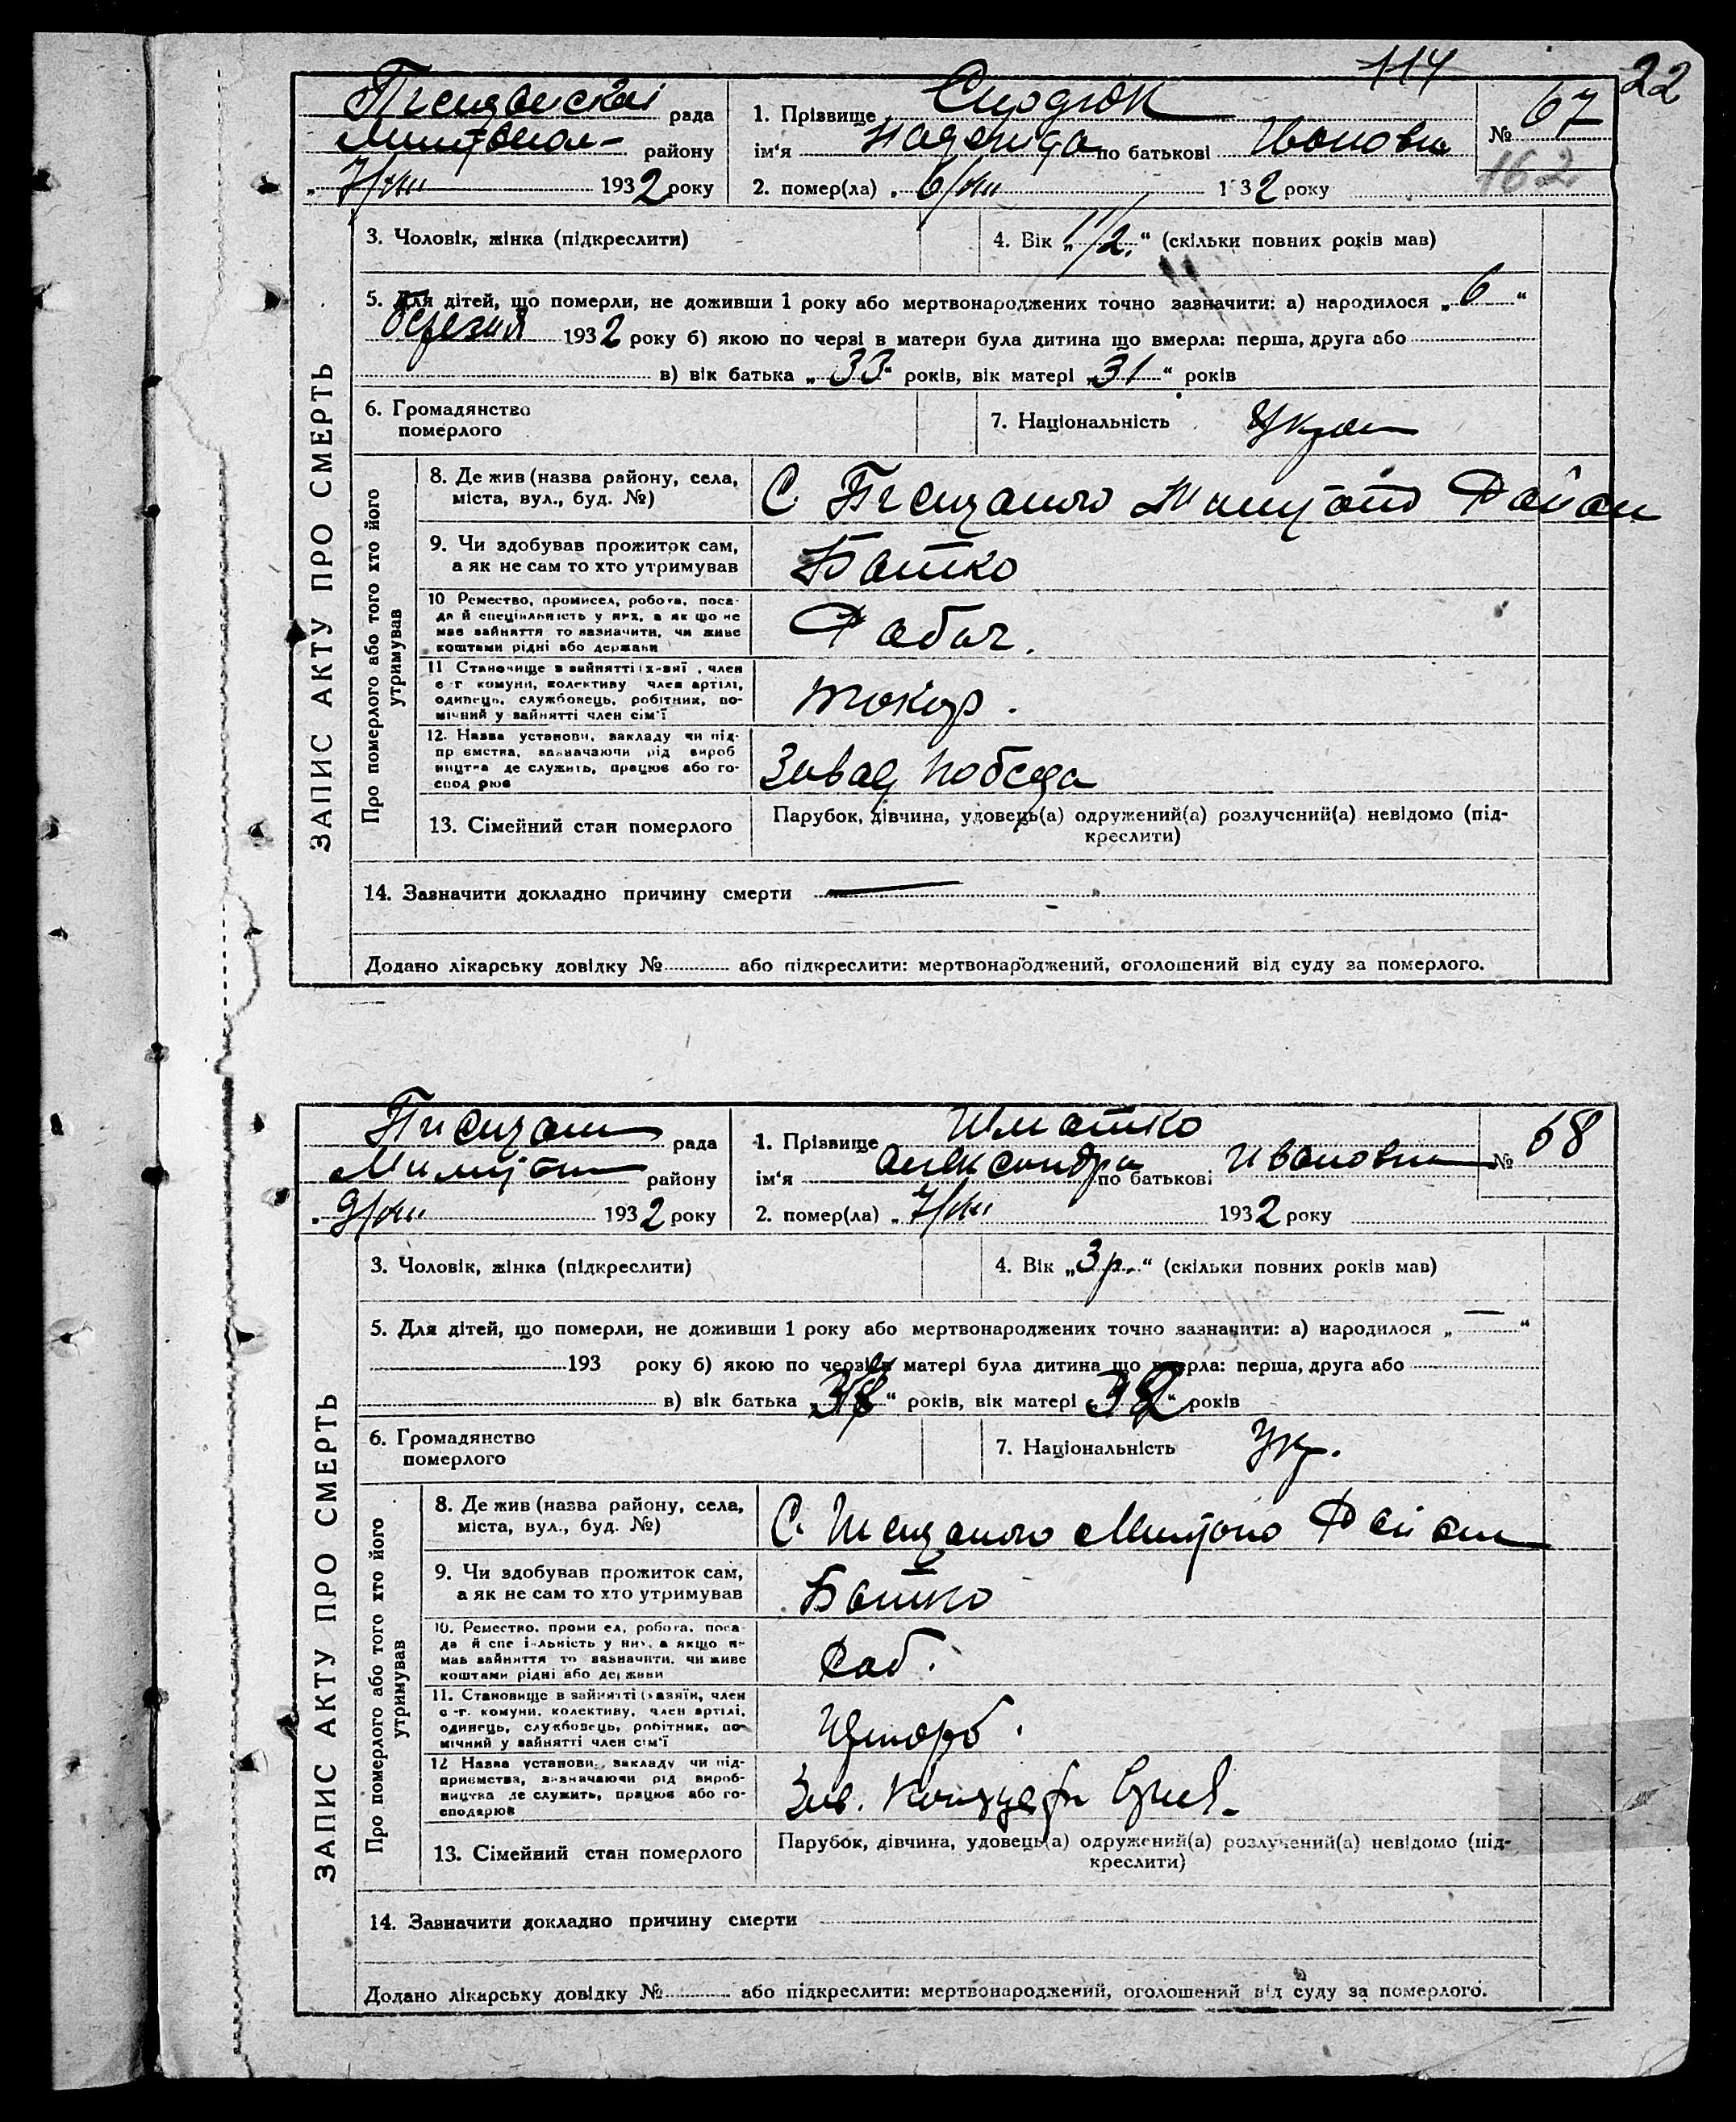 114
22
рада
1. Прізвище
№ 67
району
ім‘я по батькові Ивановна
162
„7/VIII 1932 року
2. помер(ла) „6/VIII 1932 року
3. Чоловік, жінка (підкреслити)
4. Вік „ 1/2.“ (скільки повних років мав)
5. Для дітей, що померли, не доживши 1 року або мертвонароджених точно зазначити: а) народилося „6“
березня 1932 року б) якою по черзі в матери була дитина що вмерла: перша, друга або
в) вік батька „33“ років, вік матері „31“ років
6. Громадянство
померлого
7. Національність Украин
ЗАПИС АКТУ ПРО СМЕРТЬ
Про померлого або того хто його
утримував
8. Де жив (назва району, села,
міста, вул., буд. №)
С.
9. Чи здобував прожиток сам,
а як не сам то хто утримував
Батко
10 Ремество, промисел, робота, поса-
да й спеціяльність у них, а як що не
має зайняття то зазначити, чи живе
коштами рідні або держави
Рабоч.
11 Становище в зайнятті (х-зяї , член
с-г. комуни, колективу член артілі,
одинець, службовець, робітник, по-
мічний у зайнятті член сім‘ї
токар.
12. Назва установи, закладу чи під-
пр ємства, зазначаючи рід вироб
ництва де служить, працює або го-
спод рює
Завад Победа
13. Сімейний стан померлого
Парубок, дівчина, удовець(а) одружений(а) розлучений(а) невідомо (під-
креслити)
14. Зазначити докладно причину смерти —
Додано лікарську довідку № або підкреслити: мертвонароджений, оголошений від суду за померлого.
рада
1. Прізвище Шматко
№ 68
району
ім‘я Александра по батькові Ивановна
„9/VIII 1932 року
2. помер(ла) „7/VIII 1932 року
3. Чоловік, жінка (підкреслити)
4. Вік „3 р.“ (скільки повних років мав)
5. Для дітей, що померли, не доживши 1 року або мертвонароджених точно зазначити: а) народилося „—“
193 року б) якою по черзі в матері була дитина що вмерла: перша, друга або
в) вік батька „38“ років, вік матері „32“ років
6. Громадянство
померлого
7. Національність Укр.
ЗАПИС АКТУ ПРО СМЕРТЬ
Про померлого або того хто його
утримував
8. Де жив (назва району, села,
міста, вул., буд. №)
С.
9. Чи здобував прожиток сам,
а як не сам то хто утримував
Батко
10. Ремество, проми ел, робота, поса-
да й спе і-льність у них, а якщо н-
має зайняття то зазначити, чи живе
коштами рідні або держави
Раб.
11. Становище в зайнятті (хазяїн, член
с-г. комуни, колективу, член артілі,
одинець, службовець, робітник, по-
мічний у зайнятті член сім‘ї
12 Назва установи, закладу чи під-
приємства, зазначаючи рід вироб-
ництва де служить, працює або го-
сподарює
13. Сімейний стан померлого
Парубок, дівчина, удовець(а) одружений(а) розлучений(а) невідомо (під-
креслити)
14. Зазначити докладно причину смерти
Додано лікарську довідку № або підкреслити: мертвонароджений, оголошений від суду за померлого.